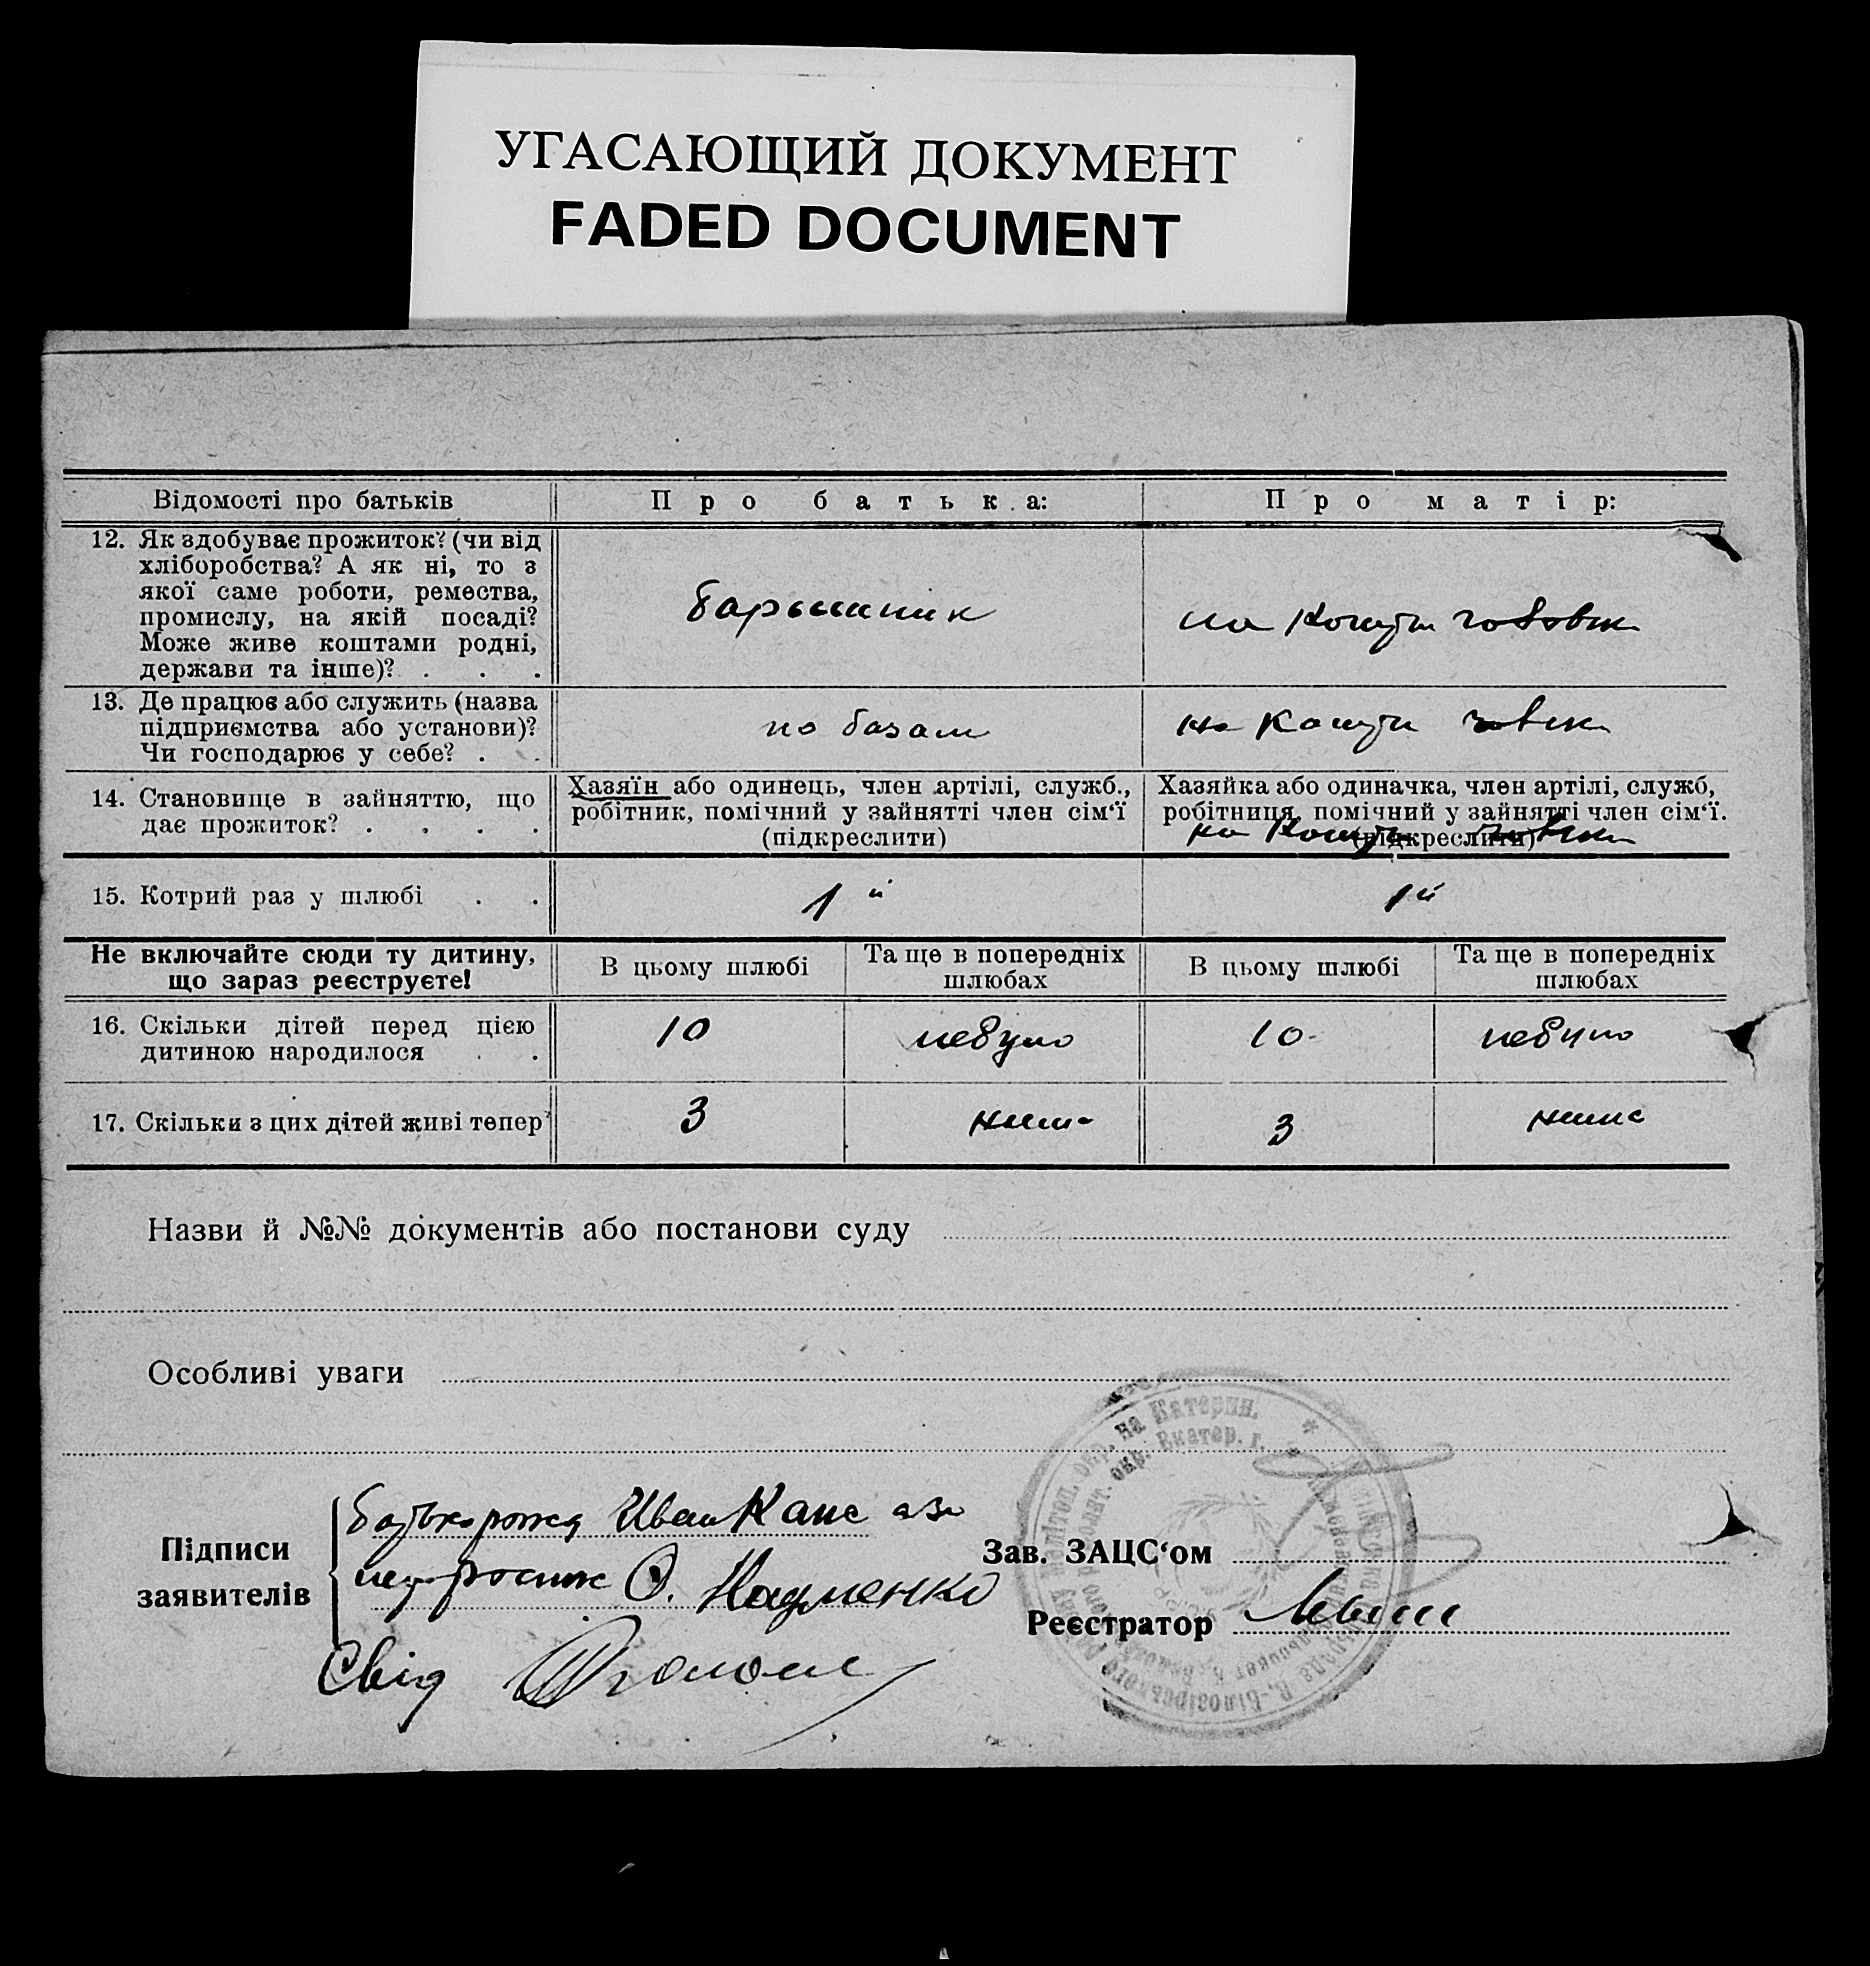 УГАСАЮЩИЙ ДОКУМЕНТ
FADED DOCUMENT
Відомості про батьків
Про батька:
Про матір:
12. Як здобуває прожиток? (чи від
хліборобства? А як ні, то з
якої саме роботи, ремества,
промислу, на якій посаді?
Може живе коштами родні,
держави та інше)? . . .
барышник
на
13. Де працює або служить (назва
підприємства або установи)?
Чи господарює у себе? . .
по базам
на
14. Становище в зайняттю, що
дає прожиток? . . . .
Хазяїн або одинець, член артілі, служб.,
робітник, помічний у зайнятті член сім‘ї
(підкреслити)
Хазяйка або одиначка, член артілі, служб,
робітниця, помічний у зайнятті член сім‘ї.
(підкреслити)
на
15. Котрий раз у шлюбі . .
1й
1й
Не включайте сюди ту дитину,
що зараз реєструєте!
В цьому шлюбі
Та ще в попередніх
шлюбах
В цьому шлюбі
Та ще в попередніх
шлюбах
16. Скільки дітей перед цією
дитиною народилося . .
10
небуло
10
небуло
17. Скільки з цих дітей живі тепер?
3
3
Назви й №№ документів або постанови суду
Особливі уваги
Підписи
заявителів
Иван
О. Науменко
Свід
Зав. ЗАЦС‘ом
Реєстратор
окр. на Катерин.
окр. Екатер. г.